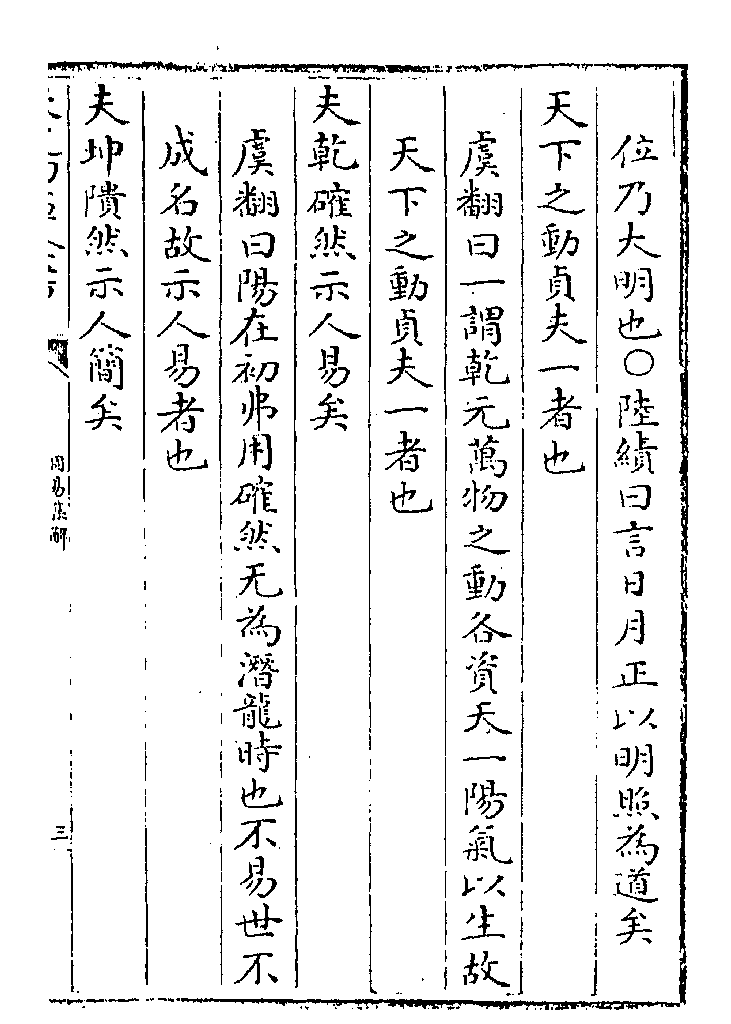 位乃大明也○陸績曰言日月正以明照為道矣
天下之動貞夫一者也
虞翻曰一謂乾元萬物之動各資天一陽氣以生故
天下之動貞夫一者也
夫乾確然示人易矣
虞翻曰陽在初弗用確然无為潛龍時也不易世不
成名故示人易者也
夫坤隤然示人簡矣
周易集解
三